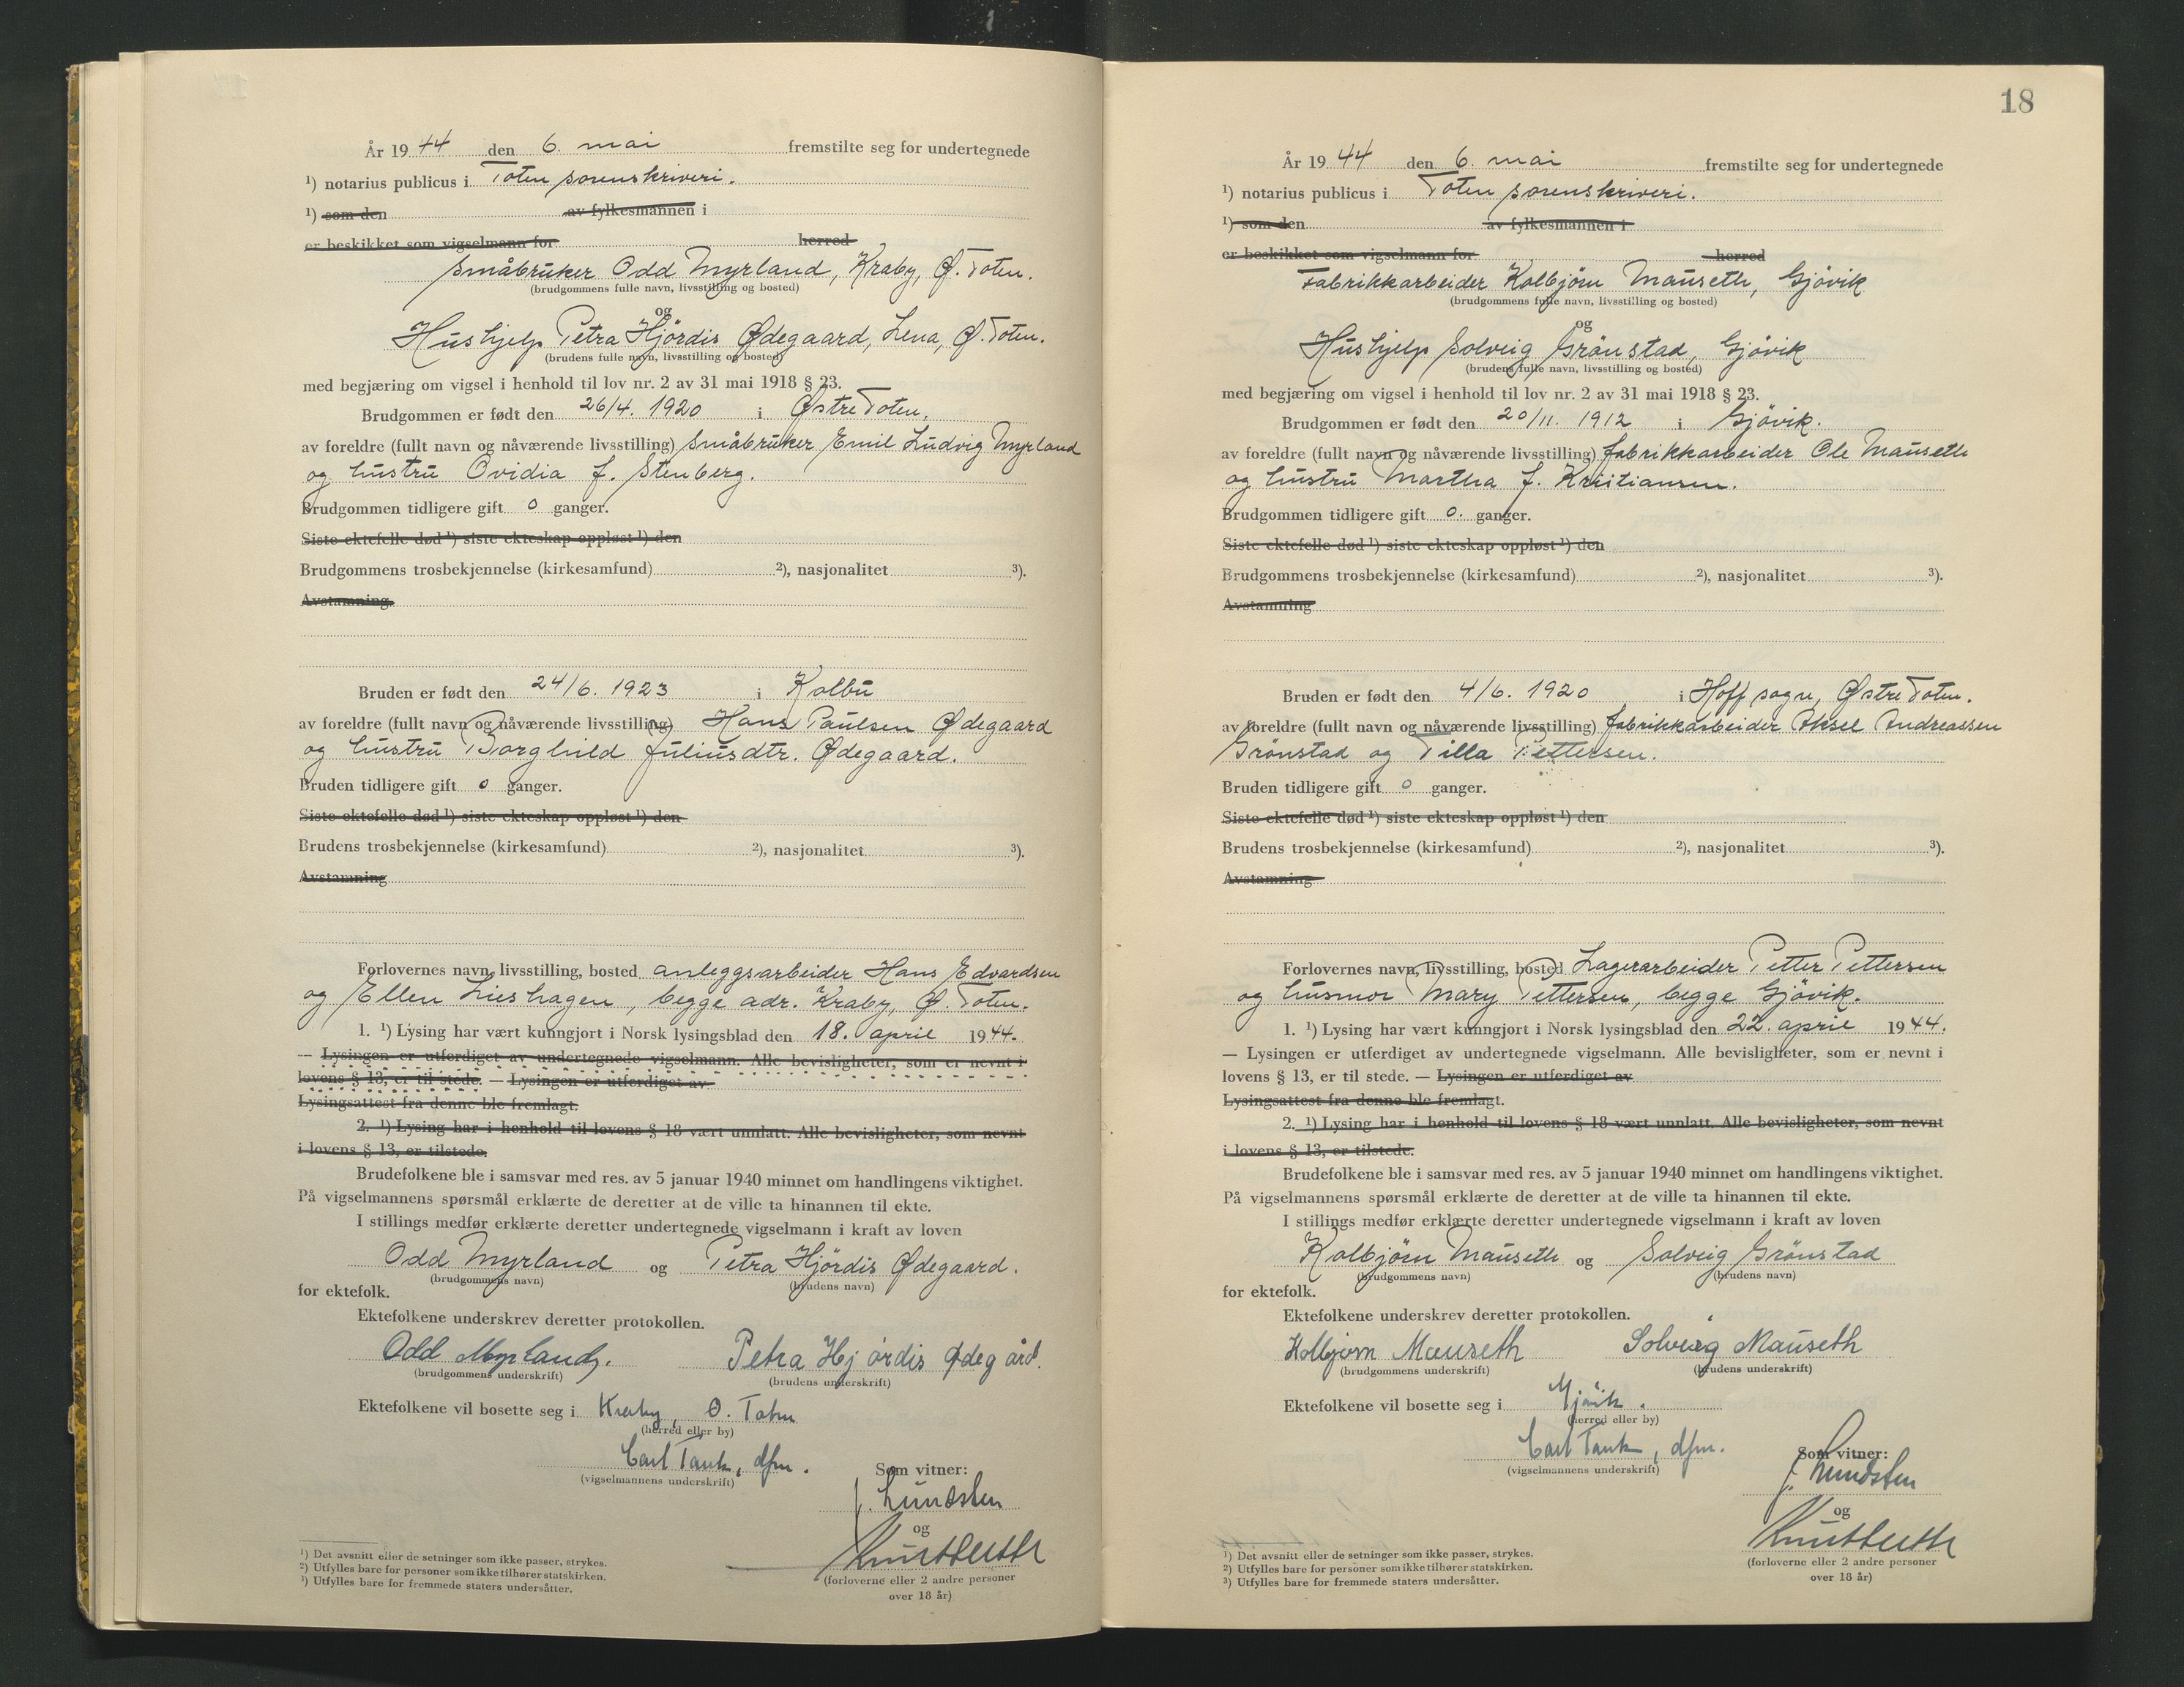 År 1944 den 6. mai fremstilte seg for undertegnede
¹) notarius publicus i Toten sorenskriveri.
¹) som den av fylkesmannen i
er beskikket som vigselmann for herred
Småbruker Odd Myrland, Kraby, Ø. Toten.
(brudgommens fulle navn, livsstilling og bosted)
og
Hushjelp Petra Hjördis Ødegaard, Lena, Ø. Toten.
(brudens fulle navn, livsstilling og bosted)
med begjæring om vigsel i henhold til lov nr. 2 av 31 mai 1918 § 23.
Brudgommen er født den 26/4. 1920 i Østre Toten.
av foreldre (fullt navn og nåværende livsstilling) småbruker Emil Ludvig Myrland
og hustru Ovidia f. Stenberg.
Brudgommen tidligere gift 0 ganger.
Siste ektefelle død ¹) siste ekteskap oppløst ¹) den
Brudgommens trosbekjennelse (kirkesamfund) ²), nasjonalitet ³).
Avstamning
Bruden er født den 24/6. 1923 i Kolbu
av foreldre (fullt navn og nåværende livsstilling) Hans Paulsen Ødegaard
og hustru Borghild Juliusdtr. Ødegaard.
Bruden tidligere gift 0 ganger.
Siste ektefelle død ¹) siste ekteskap oppløst ¹) den
Brudens trosbekjennelse (kirkesamfund) ²), nasjonalitet ³).
Avstamning
Forlovernes navn, livsstilling, bosted anleggsarbeider Hans Edvardsen
og Ellen Lieshagen, begge adr. Kraby, Ø. Toten.
1. ¹) Lysing har vært kunngjort i Norsk lysingsblad den 18. april 1944.
— Lysingen er utferdiget av undertegnede vigselmann. Alle bevisligheter, som er nevnt i
lovens § 13, er til stede. — Lysingen er utferdiget av
Lysingsattest fra denne ble fremlagt.
2. ¹) Lysing har i henhold til lovens § 18 vært unnlatt. Alle bevisligheter, som nevnt
i lovens § 13, er tilstede.
Brudefolkene ble i samsvar med res. av 5 januar 1940 minnet om handlingens viktighet.
På vigselmannens spørsmål erklærte de deretter at de ville ta hinannen til ekte.
I stillings medfør erklærte deretter undertegnede vigselmann i kraft av loven
Odd Myrland og Petra Hjördis Ødegaard.
(brudgommens navn) (brudens navn)
for ektefolk.
Ektefolkene underskrev deretter protokollen.
Odd Myrland. Petra Hjördis Ødegård.
(brudgommens underskrift) (brudens underskrift)
Ektefolkene vil bosette seg i Kraby, Ø. Toten
(herred eller by)
Carl Tank, dfm.
(vigselmannens underskrift)
Som vitner:
J. Lundsten
og
(forloverne eller 2 andre personer
over 18 år)
¹) Det avsnitt eller de setninger som ikke passer, strykes.
²) Utfylles bare for personer som ikke tilhører statskirken.
³) Utfylles bare for fremmede staters undersåtter.
18
År 1944 den 6. mai fremstilte seg for undertegnede
¹) notarius publicus i Toten sorenskriveri.
¹) som den av fylkesmannen i
er beskikket som vigselmann for herred
Fabrikkarbeider Kolbjörn Mauseth, Gjövik
(brudgommens fulle navn, livsstilling og bosted)
og
Hushjelp Solveig Grönstad, Gjövik
(brudens fulle navn, livsstilling og bosted)
med begjæring om vigsel i henhold til lov nr. 2 av 31 mai 1918 § 23.
Brudgommen er født den 20/11. 1912 i Gjövik.
av foreldre (fullt navn og nåværende livsstilling) fabrikkarbeider Ole Mauseth
og hustru Martha f. Kristiansen.
Brudgommen tidligere gift 0. ganger.
Siste ektefelle død ¹) siste ekteskap oppløst ¹) den
Brudgommens trosbekjennelse (kirkesamfund) ²), nasjonalitet ³).
Avstamning
Bruden er født den 4/6. 1920 i Hoff sogn, Østre Toten.
av foreldre (fullt navn og nåværende livsstilling) fabrikkarbeider Aksel Andreassen
Grönstad og Tilla Pettersen.
Bruden tidligere gift 0 ganger.
Siste ektefelle død ¹) siste ekteskap oppløst ¹) den
Brudens trosbekjennelse (kirkesamfund) ²), nasjonalitet ³).
Avstamning
Forlovernes navn, livsstilling, bosted Lagerarbeider Petter Pettersen
og husmor Mary Pettersen, begge Gjövik.
1. ¹) Lysing har vært kunngjort i Norsk lysingsblad den 22. april 1944.
— Lysingen er utferdiget av undertegnede vigselmann. Alle bevisligheter, som er nevnt i
lovens § 13, er til stede. — Lysingen er utferdiget av
Lysingsattest fra denne ble fremlagt.
2. ¹) Lysing har i henhold til lovens § 18 vært unnlatt. Alle bevisligheter, som nevnt
i lovens § 13, er tilstede.
Brudefolkene ble i samsvar med res. av 5 januar 1940 minnet om handlingens viktighet.
På vigselmannens spørsmål erklærte de deretter at de ville ta hinannen til ekte.
I stillings medfør erklærte deretter undertegnede vigselmann i kraft av loven
Kolbjörn Mauseth og Solveig Grönstad
(brudgommens navn) (brudens navn)
for ektefolk.
Ektefolkene underskrev deretter protokollen.
Kolbjørn Mauseth Solveig Mauseth
(brudgommens underskrift) (brudens underskrift)
Ektefolkene vil bosette seg i Gjövik.
(herred eller by)
Carl Tank, dfm.
(vigselmannens underskrift)
Som vitner:
J. Lundsten
og
(forloverne eller 2 andre personer
over 18 år)
¹) Det avsnitt eller de setninger som ikke passer, strykes.
²) Utfylles bare for personer som ikke tilhører statskirken.
³) Utfylles bare for fremmede staters undersåtter.